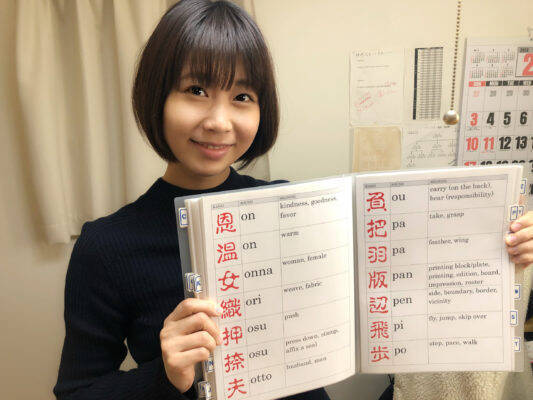 恩 on kindness, goodness,
favor
温 on warm
女 onna woman, female
織 ori weave, fabric
押 osu push
捺 osu press down, stamp,
affix a seal
夫 otto husband, man
負 ou carry (on the back),
bear (responsibility)
把 pa take, grasp
羽 pa feather, wing
版 pan printing block/plate,
printing, edition, board,
impression, roster
辺 pen side, boundary, border,
vicinity
飛 pi fly, jump, skip over
歩 po step, pace, walk
2
3 4 5 6
10 11 12 13